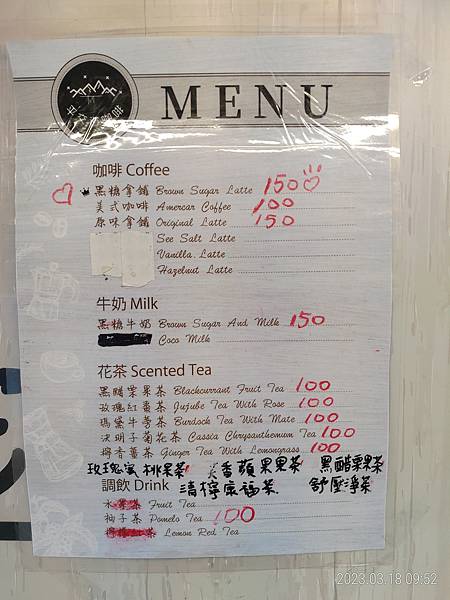 MENU
咖啡 Coffee
黑糖拿鐵 Brown Sugar Latte 150
美式咖啡 Amercar Coffee 100
原味拿鐵 Original Latte 150
See Salt Latte
Vanilla Latte
Hazelnut Latte
牛奶 Milk
黑糖牛奶 Brown Sugar And Milk 150
Coco Milk
花茶 Scented Tea
黑醋栗果茶 Blackcurrant Fruit Tea 100
玫瑰紅棗茶 Jujube Tea With Rose 100
瑪黛牛蒡茶 Burdock Tea With Mate 100
決明子菊花茶 Cassia Chrysanthemum Tea 100
檸香薑茶 Ginger Tea With Lemongrass 100
玫瑰蜜桃果茶 香蘋果果茶 黑醋栗果茶
調飲 Drink 清檸 茶 舒壓淨茶
水果茶 Fruit Tea
柚子茶 Pomelo Tea 100
Lemon Red Tea
2023.03.18 09:52